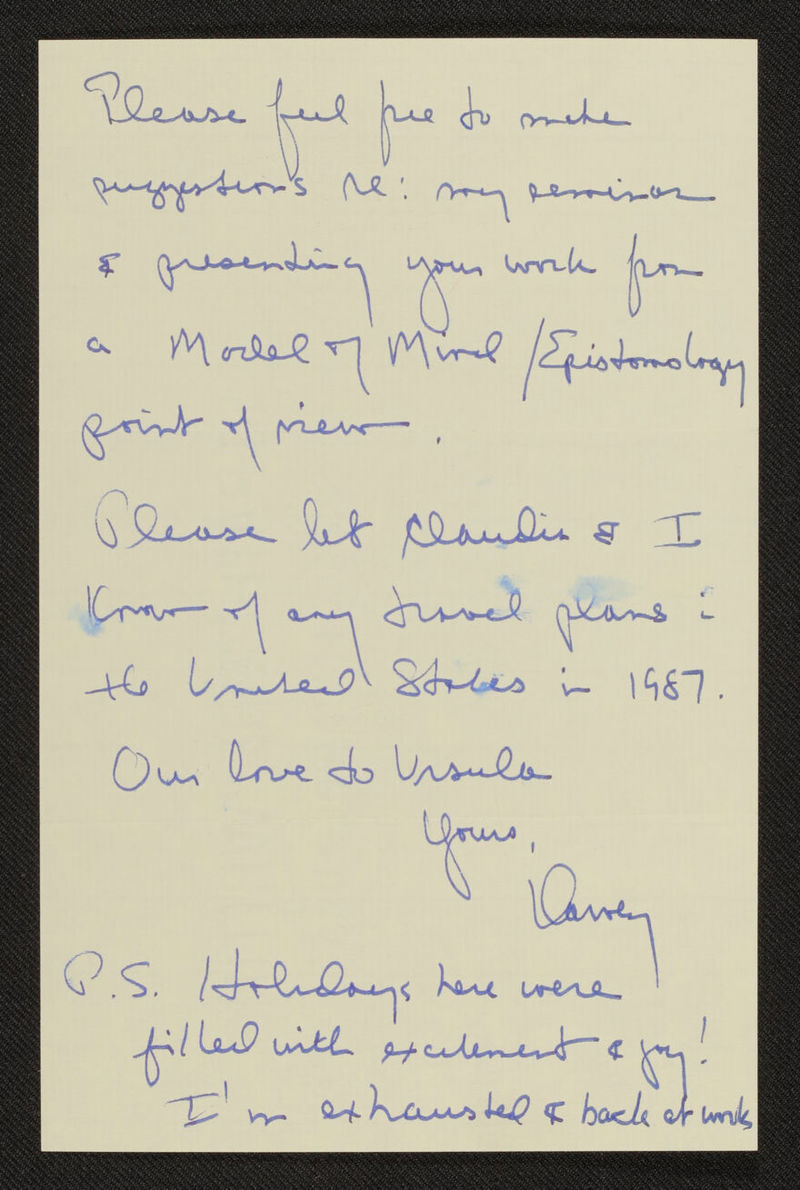 Please feel free to make
suggestions re: my seminar
& presenting your work from
a Model of Mind / Epistomology
point of view.
Please let Claudia & I
Know of any travel plans in
the United States in 1987.
Our love to Ursula
Yours,
Harvey
P.S. Holidays here were
filled with excitement & joy!
I'm exhausted & back at work